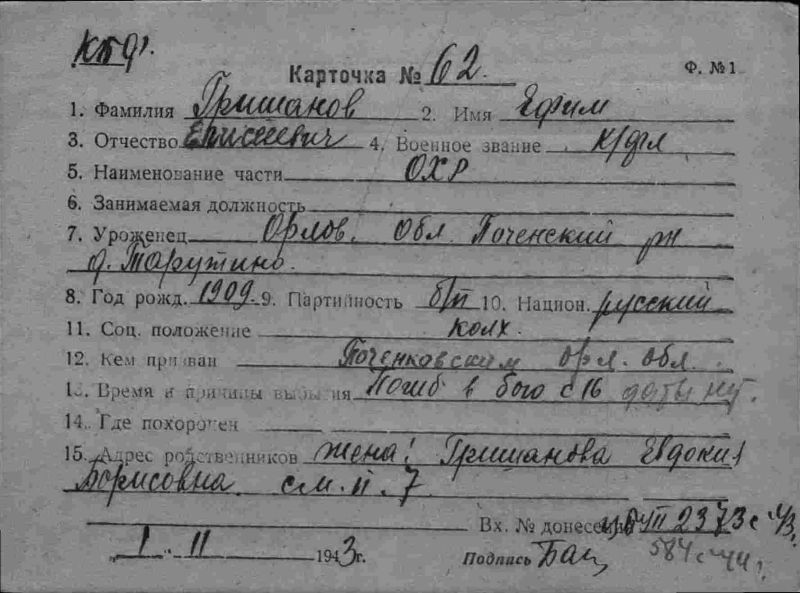 Карточка № 62. Ф. №1
1. Фамилия Гришанов 2. Имя Ефим
3. Отчество Елисеевич 4. Военное звание к/фл
5. Наименование части ОХР
6. Занимаемая должность
7. Уроженец Орлов. Обл. Поченский рн
д. Тарутино.
8. Год рожд. 1909. 9. Партийность б/п 10. Национ. русский
11. Соц. положение колх.
12. Кем призван Поченковским орл. обл.
13. Время и причины выбытия Погиб в бою с 16 даты нет.
14. Где похоронен
15. Адрес родственников жена: Гришанова Евдокия
Борисовна. см. п. 7
Вх. № донесения 2373 с 43.
"1" II 1943г. Подпись 584с 44г.